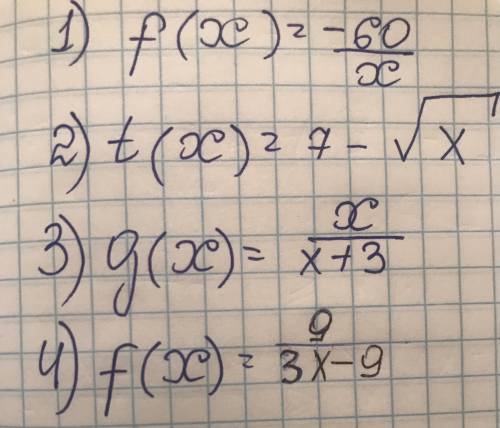 1) f(x) = -60/x
2) t(x) = 7 - √x
3) g(x) = x/x+3
4) f(x) = 9/3x-9